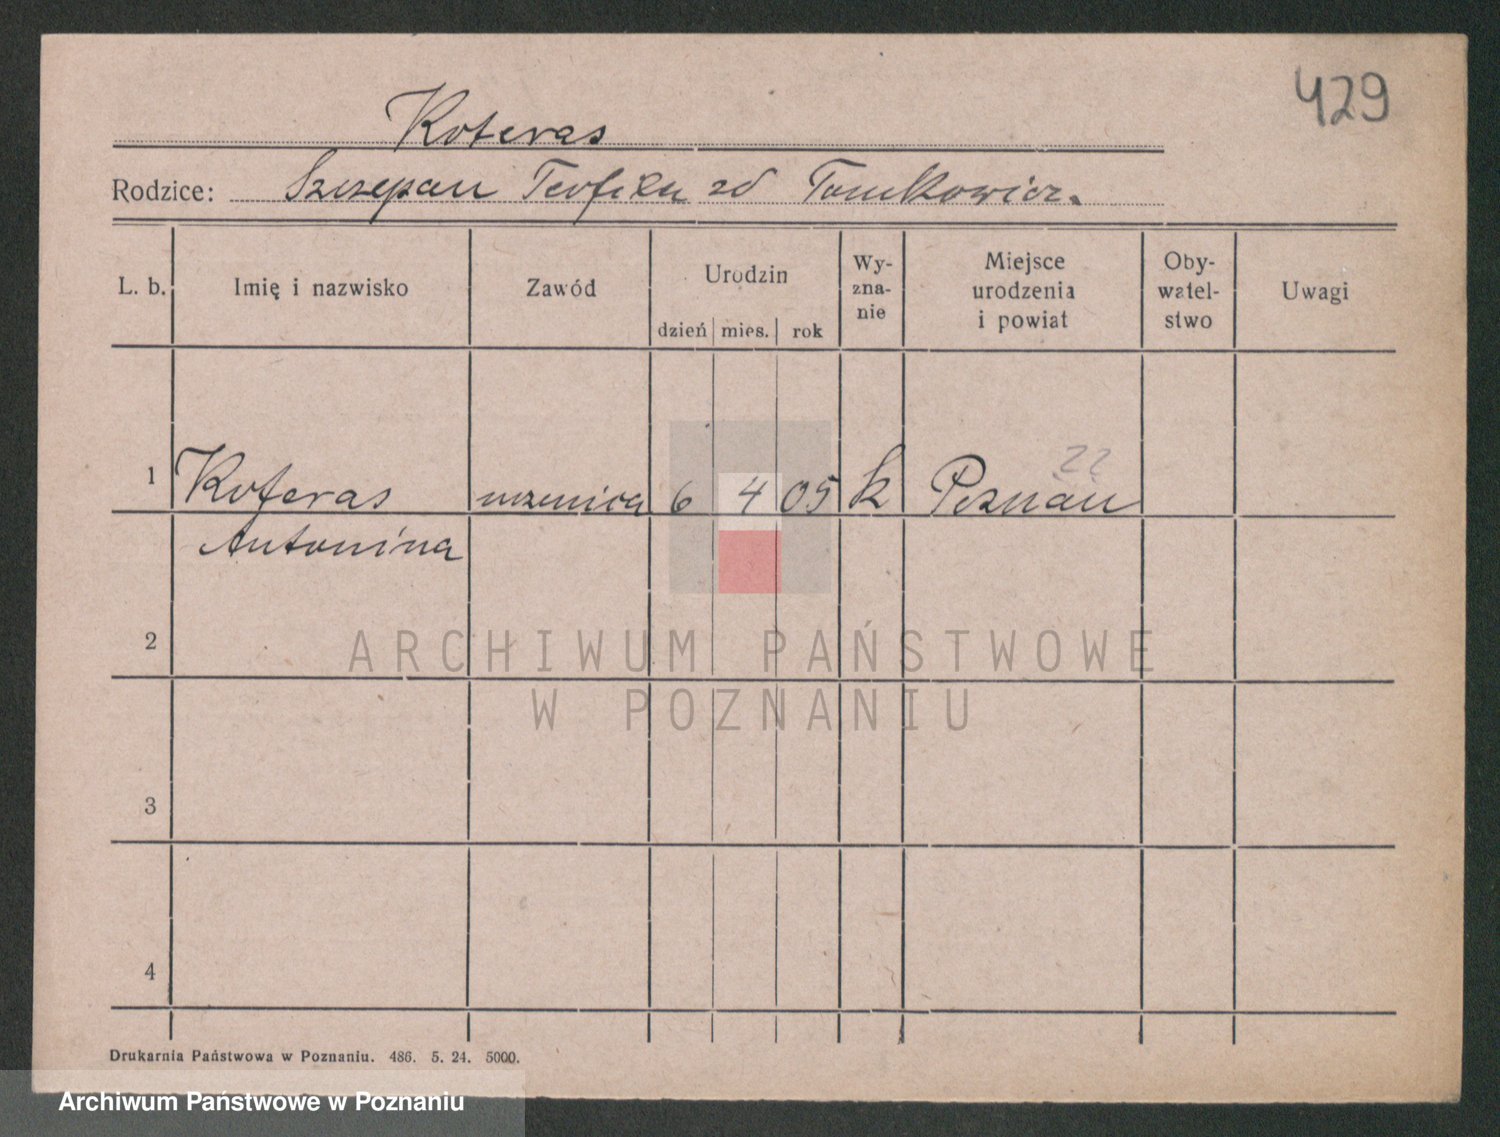 429
Koteras
Rodzice: Szczepan Teofila zd Tomkowicz.
L. b. Imię i nazwisko Zawód Urodzin dzień mies. rok Wy-zna-nie Miejsce urodzenia i powiat Oby-watel-stwo Uwagi
??
1 Koteras uczenica 6 4 05 k Poznań
Antonina
2
ARCHIWUM PAŃSTWOWE
W POZNANIU
3
4
Drukarnia Państwowa w Poznaniu. 486. 5. 24. 5000.
Archiwum Państwowe w Poznaniu